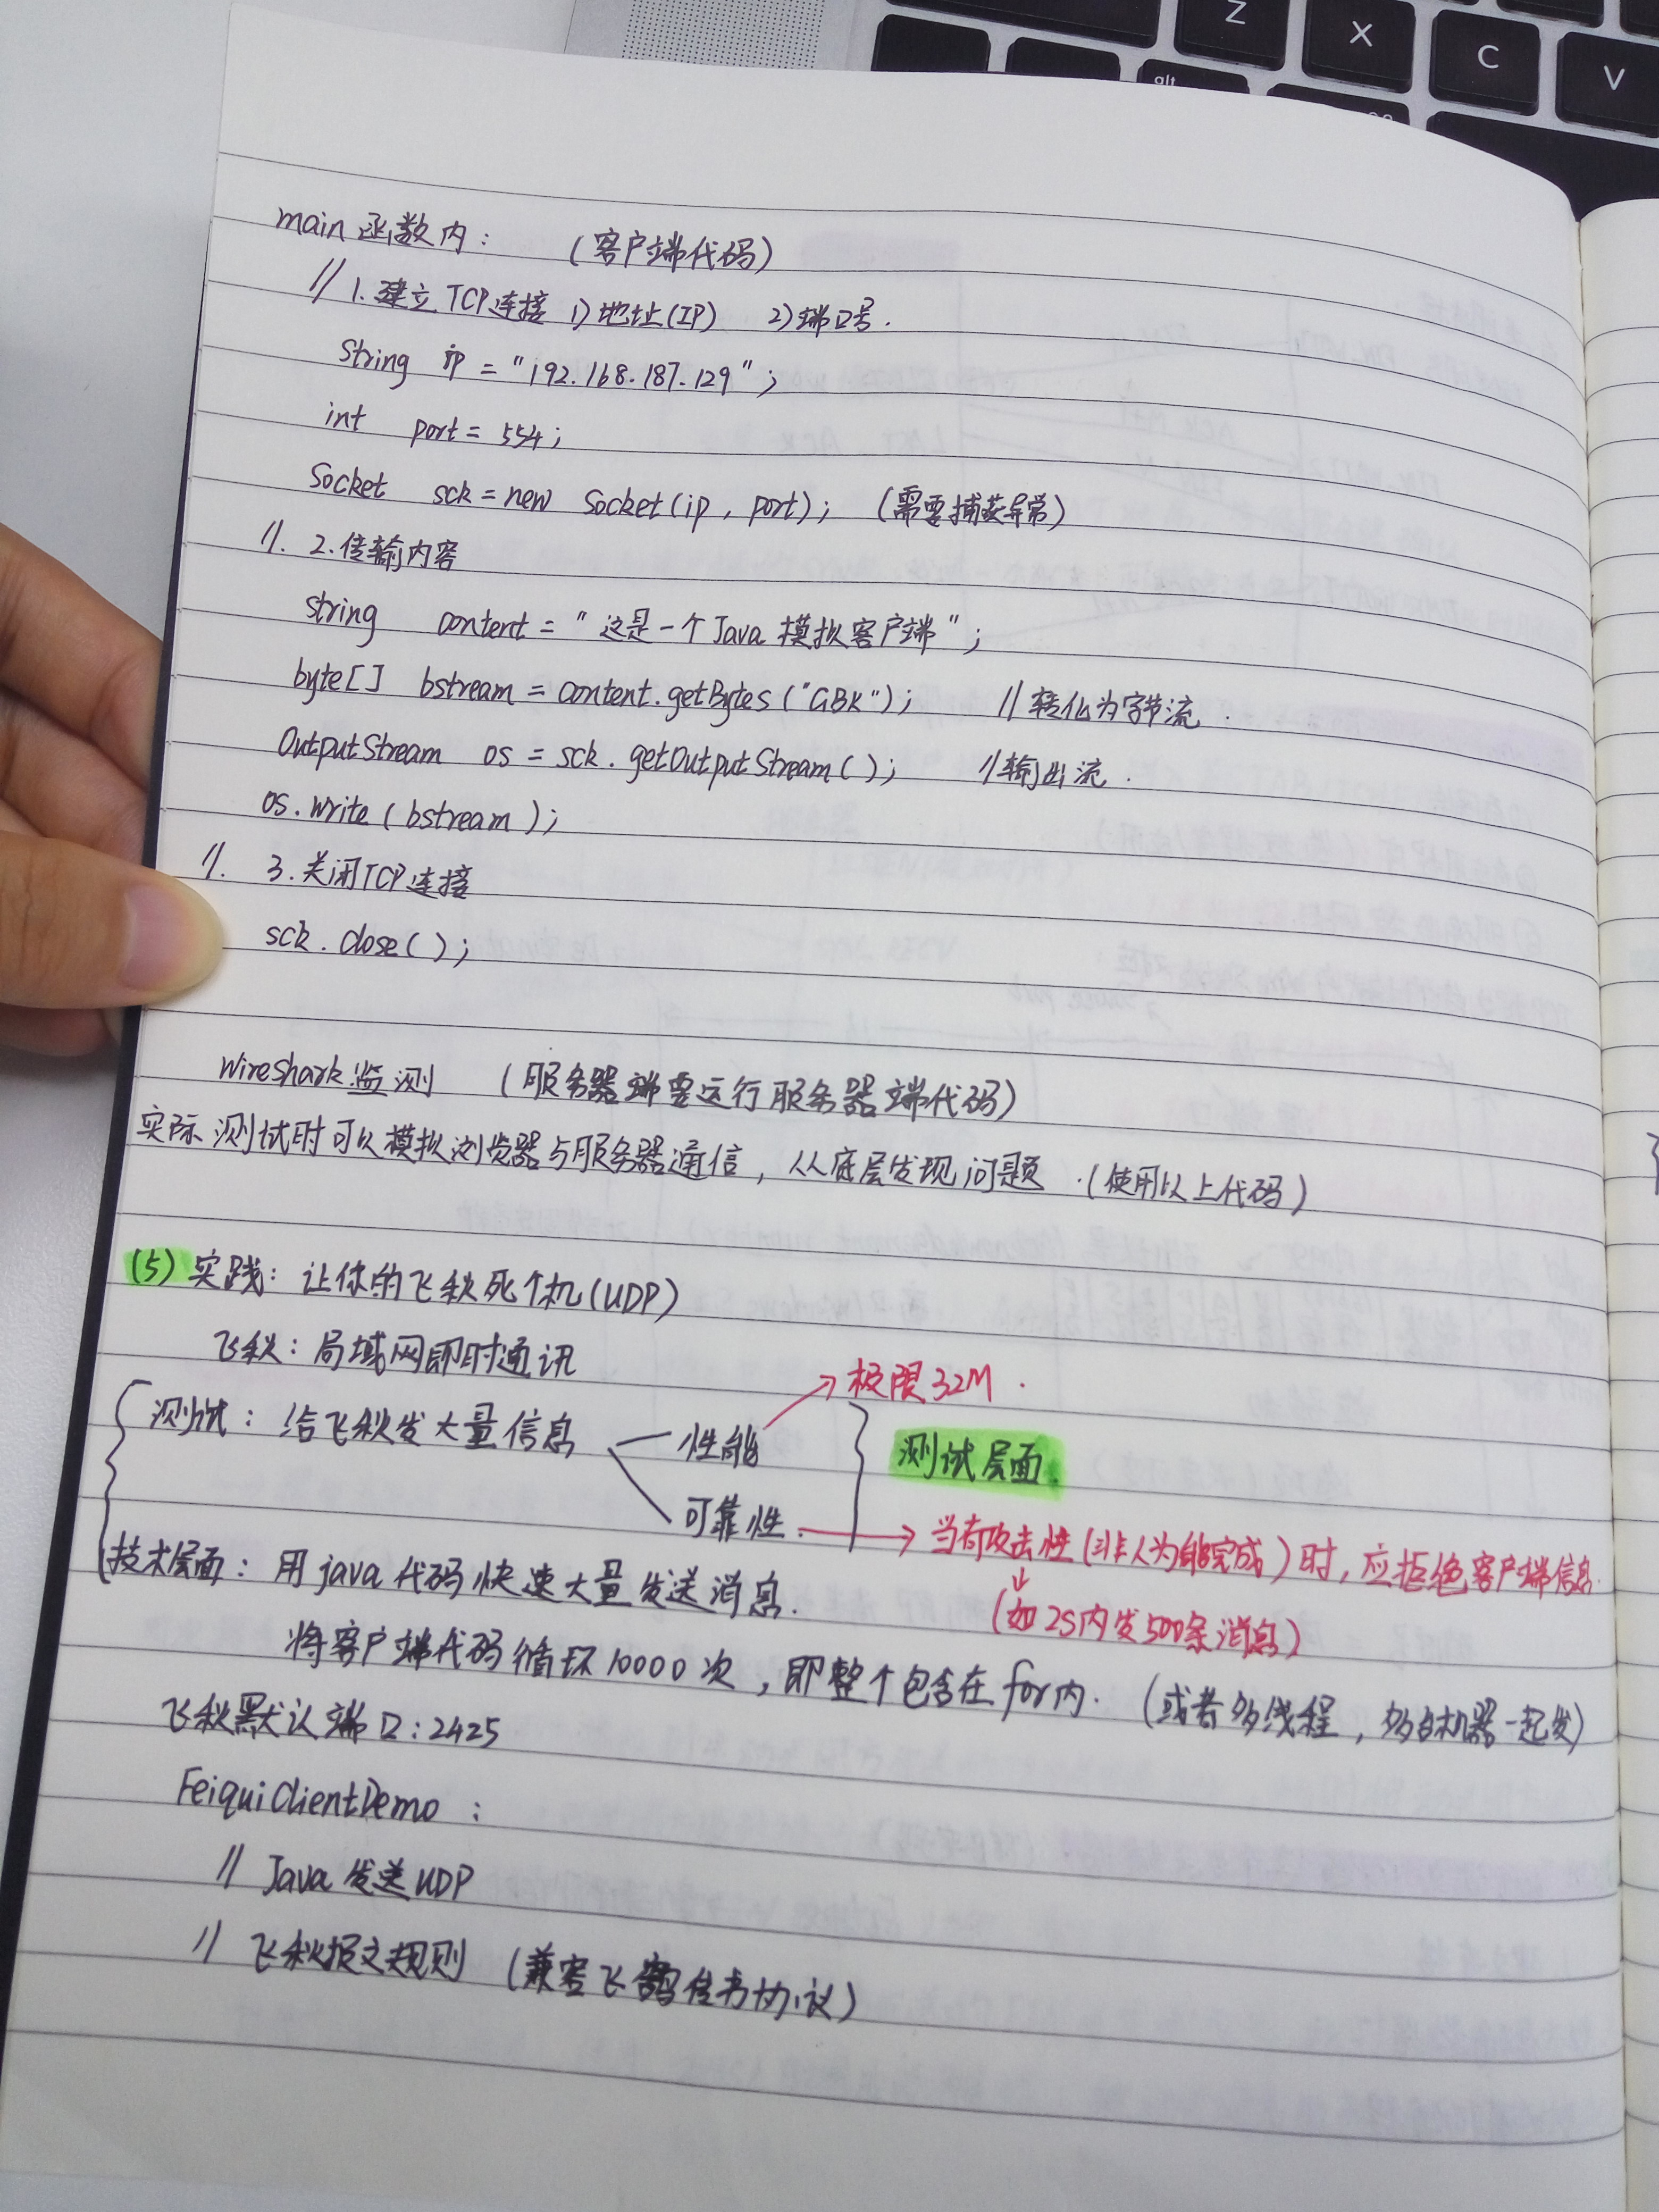 Z
X
C
V
alt
main函数内： （客户端代码）
// 1.建立TCP连接 1)地址(IP) 2)端口号.
String ip = "192.168.187.129";
int port = 554;
Socket sck = new Socket(ip, port); （需要捕获异常）
//. 2.传输内容
string content = "这是一个Java模拟客户端";
byte[] bstream = content.getBytes("GBK"); //转化为字节流.
OutputStream os = sck.getOutputStream(); //输出流.
os.write(bstream);
//. 3.关闭TCP连接
sck.close();
Wireshark监测 （服务器端要运行服务器端代码）
实际测试时可以模拟浏览器与服务器通信，从底层发现问题.（使用以上代码）
(5)实践：让你的飞秋死个机(UDP)
飞秋：局域网即时通讯
极限32M.
测试：给飞秋发大量信息 性能
测试层面.
可靠性. 当有攻击性(非人为能完成)时，应拒绝客户端信息.
(如2S内发500条消息)
技术层面：用java代码快速大量发送消息.
将客户端代码循环10000次，即整个包含在for内.（或者多线程，多台机器一起发）
飞秋默认端口：2425
FeiquiClientDemo：
// Java发送UDP
// 飞秋报文规则 （兼容飞鸽传书协议）